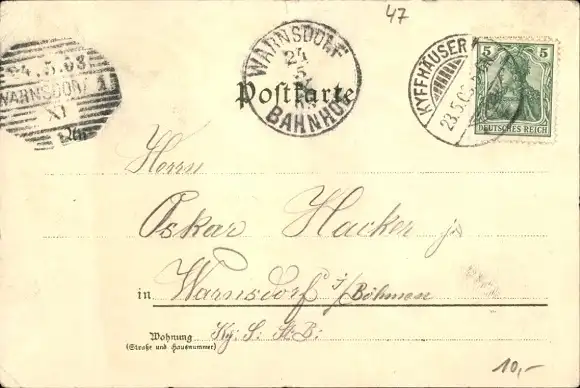 47
24.5.03
WARNSDORF 1.
XI
WARNSDORF
24
5
BAHNHOF
KYFFHÄUSER
23.5.03
5 5
DEUTSCHES REICH
Postkarte
Herrn
Oskar Hacker jr
in Warnsdorf i/Böhmen
Wohnung
(Straße und Hausnummer)
10,-